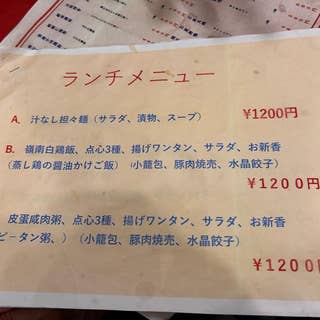 ランチメニュー
A. 汁なし担々麺(サラダ、漬物、スープ)
¥1200円
B. 嶺南白鶏飯、点心3種、揚げワンタン、サラダ、お新香
(蒸し鶏の醤油かけご飯)(小籠包、豚肉焼売、水晶餃子)
¥1200円
皮蛋咸肉粥、点心3種、揚げワンタン、サラダ、お新香
ピータン粥、)(小籠包、豚肉焼売、水晶餃子)
¥1200